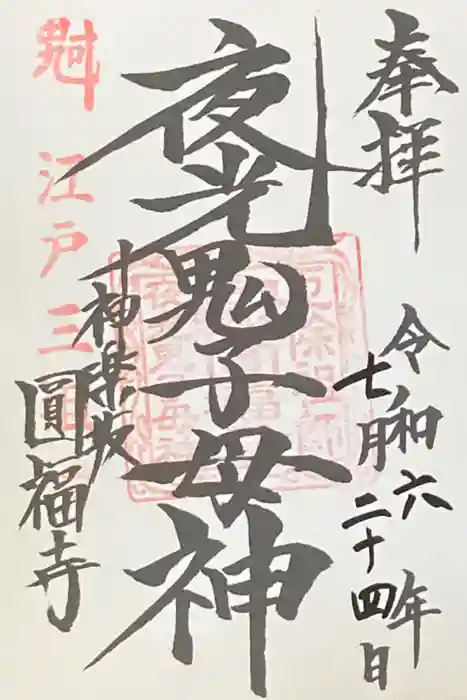 奉拝
令和六年
七月二十四日
夜光鬼子母神
江戸三
神楽坂
圓福寺